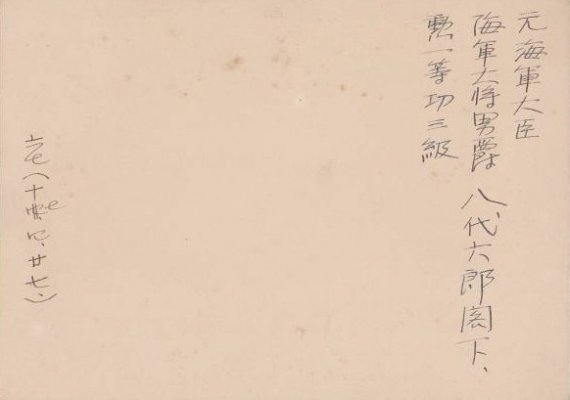 元海軍大臣
海軍大将男爵 八代六郎閣下、
勲一等功三級
廿七、)